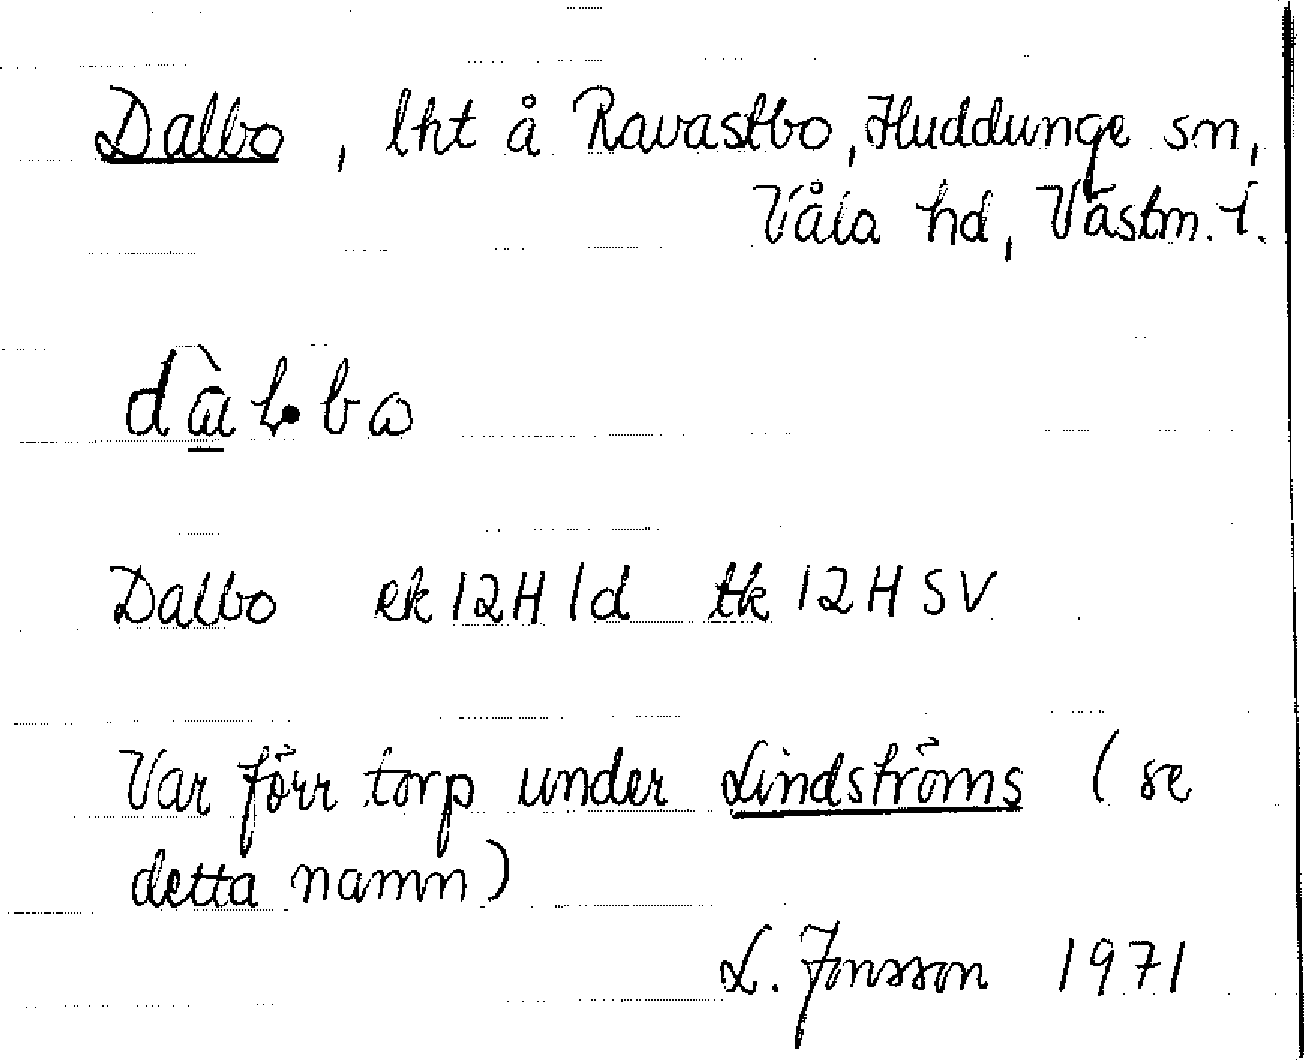 Dalbo, lht å Ravastbo, Huddunge sn,
Våla hd, Västm. l.
Dalbo ek 12H 1d tk 12H SV
Var förr torp under Lindströms (se
detta namn)
L. Jonsson 1971